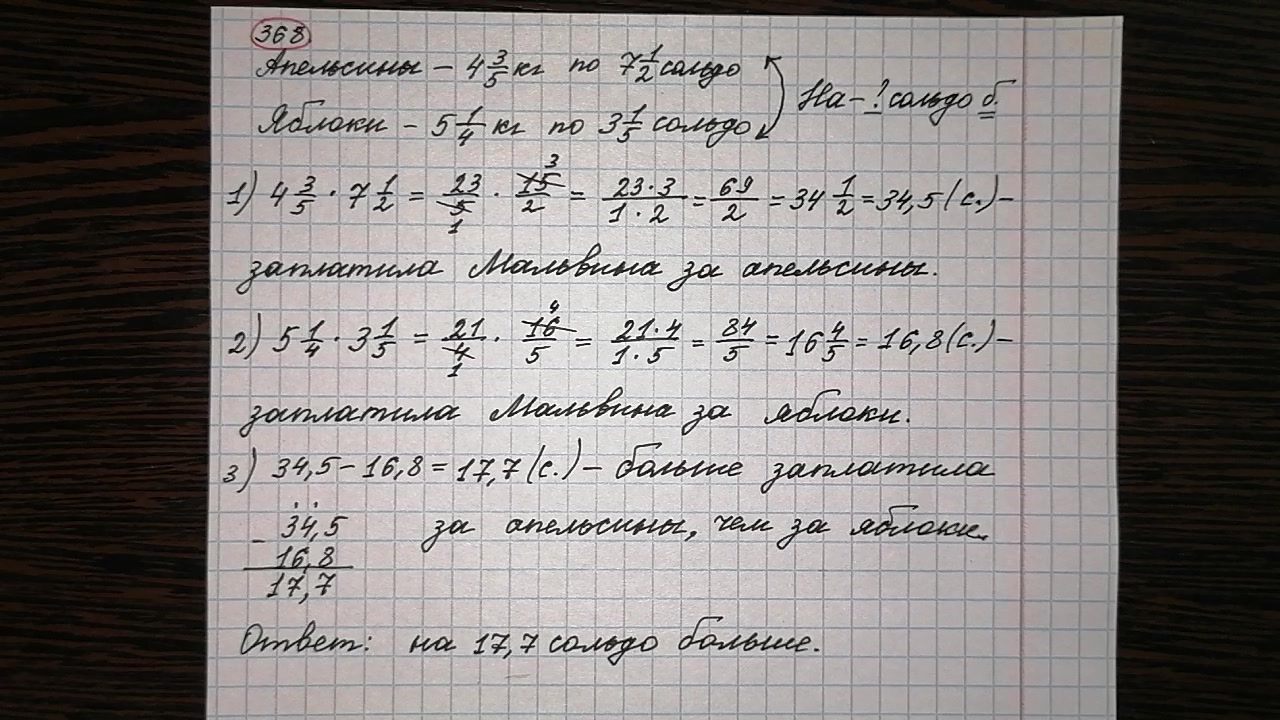 368
Апельсины – 4 3/5 кг по 7 1/2 сольдо
На – ? сольдо б.
Яблоки – 5 1/4 кг по 3 1/5 сольдо
1) 4 3/5 · 7 1/2 = 23/5 · 15/2 = 23·3/1·2 = 69/2 = 34 1/2 = 34,5 (с.) –
3
1
заплатила Мальвина за апельсины.
2) 5 1/4 · 3 1/5 = 21/4 · 16/5 = 21·4/1·5 = 84/5 = 16 4/5 = 16,8 (с.) –
4
1
заплатила Мальвина за яблоки.
3) 34,5 – 16,8 = 17,7 (с.) – больше заплатила
за апельсины, чем за яблоки.
34,5
– 16,8
17,7
Ответ: на 17,7 сольдо больше.